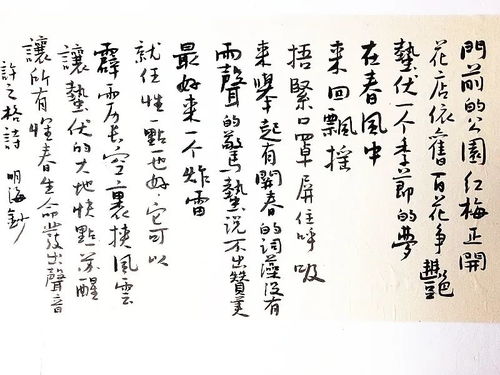 門前的公園红梅正開
花店依舊百花争艷
蟄伏一个季節的夢
在春風中
来回飘摇
捂緊口罩屏住呼吸
来舉起有關春的詞藻沒有
雨聲的驚蟄说不出贊美
最好来一个炸雷
就任性一點也好它可以
霹雳长空裹挟風雲
讓蟄伏的大地快點苏醒
讓所有怪春生命發出聲音
許之格詩 明海鈔